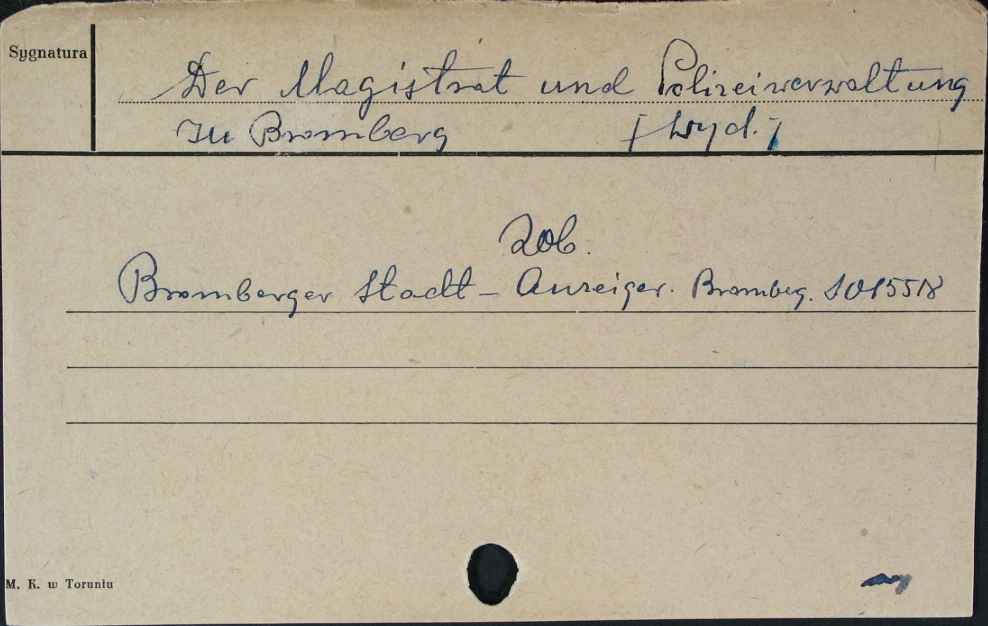 Sygnatura
Der Magistrat und Polizeiverwaltung
zu Bromberg [wyd.]
Zob.
Bromberger Stadt-Anzeiger. Bromberg. S015518
M. K. w Toruniu